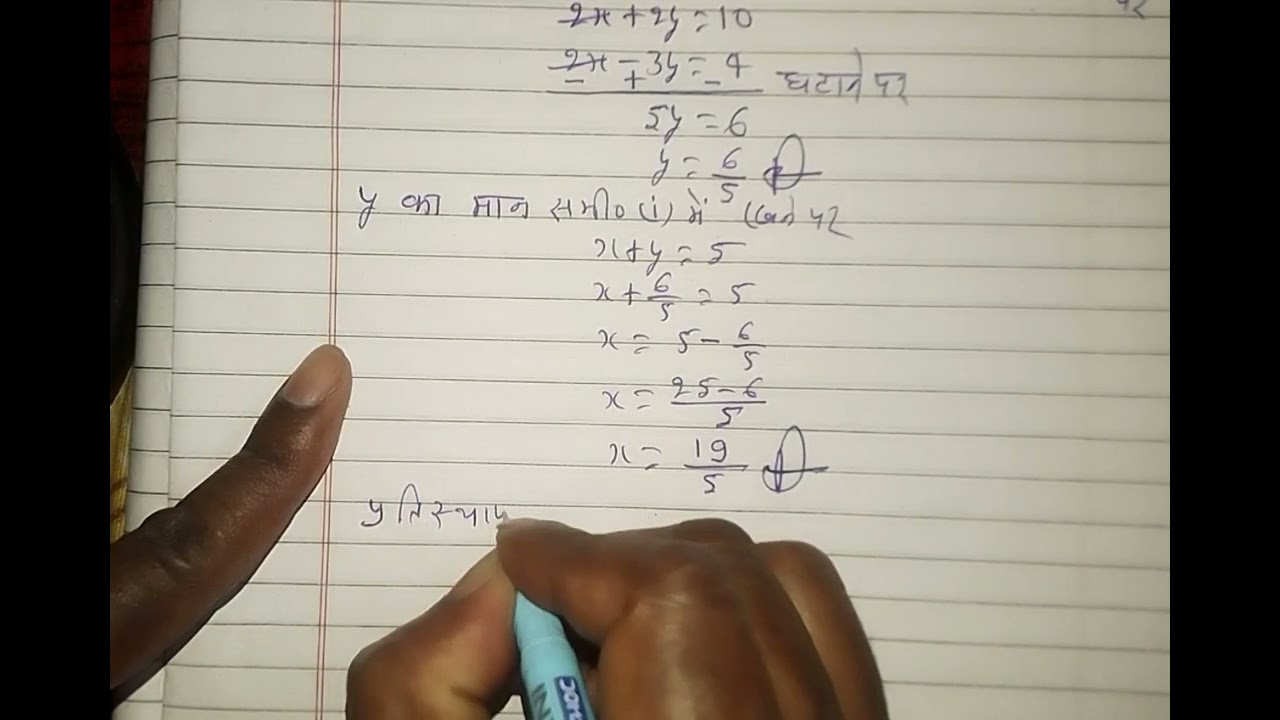 2x + 2y = 10
2x - 3y = 4 घटाने पर
- + -
5y = 6
y = 6/5
y का मान समी० (i) में रखने पर
x + y = 5
x + 6/5 = 5
x = 5 - 6/5
x = 25-6/5
x = 19/5
प्रतिस्थाप